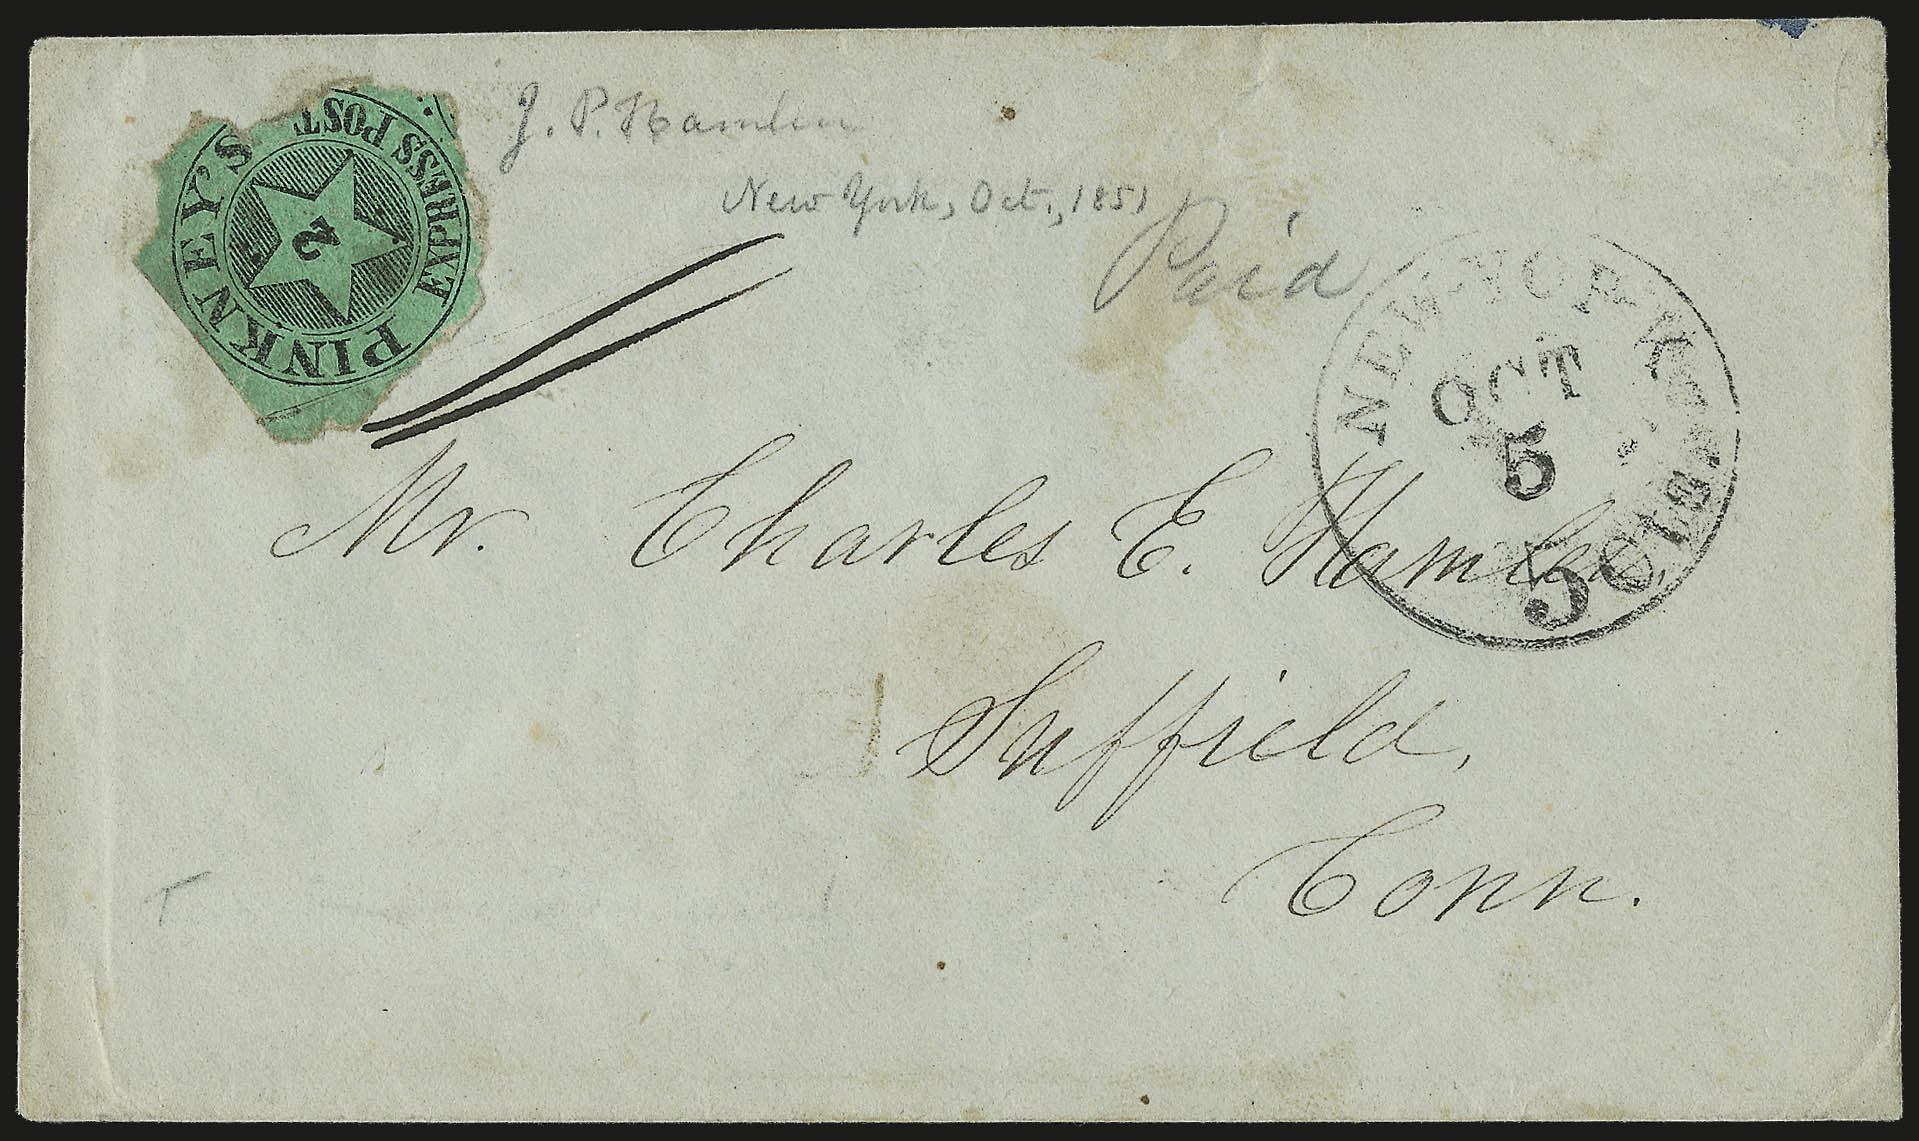 PINKNEY'S EXPRESS POST
2
J. P. Hamlen
New York, Oct., 1851
Paid
NEW-YORK
OCT
5
5 Cts.
Mr. Charles E. Hamlen,
Suffield,
Conn.